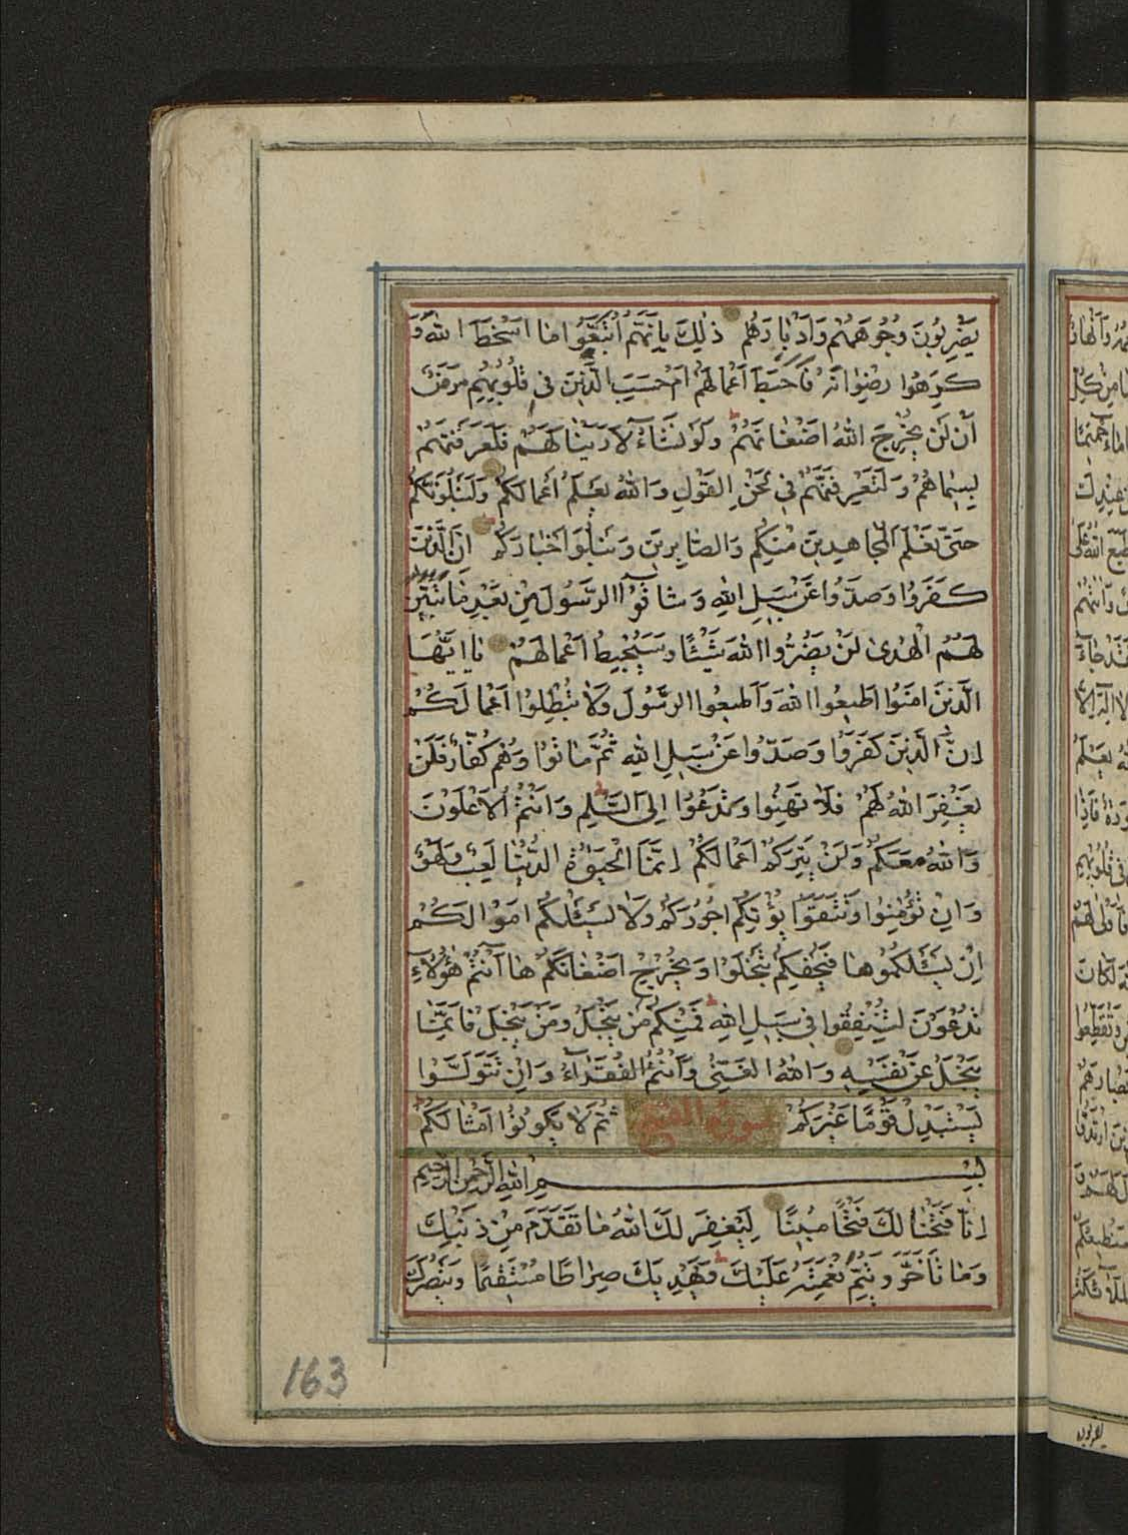 يَضْرِبُونَ وُجُوهَهُمْ وَاَدْبَارَهُمْ ذٰلِكَ بِاَنَّهُمُ اتَّبَعُوا مَا اَسْخَطَ اللّٰهَ وَ
كَرِهُوا رِضْوَانَهُ فَاَحْبَطَ اَعْمَالَهُمْ اَمْ حَسِبَ الَّذِينَ فِي قُلُوبِهِمْ مَرَضٌ
اَنْ لَنْ يُخْرِجَ اللّٰهُ اَضْغَانَهُمْ وَلَوْ نَشَاءُ لَاَرَيْنَاكَهُمْ فَلَعَرَفْتَهُمْ
بِسِيمَاهُمْ وَلَتَعْرِفَنَّهُمْ فِي لَحْنِ الْقَوْلِ وَاللّٰهُ يَعْلَمُ اَعْمَالَكُمْ وَلَنَبْلُوَنَّكُمْ
حَتّٰى نَعْلَمَ الْمُجَاهِدِينَ مِنْكُمْ وَالصَّابِرِينَ وَنَبْلُوَا اَخْبَارَكُمْ اِنَّ الَّذِينَ
كَفَرُوا وَصَدُّوا عَنْ سَبِيلِ اللّٰهِ وَشَاقُّوا الرَّسُولَ مِنْ بَعْدِ مَا تَبَيَّنَ
لَهُمُ الْهُدٰى لَنْ يَضُرُّوا اللّٰهَ شَيْئًا وَسَيُحْبِطُ اَعْمَالَهُمْ يَا اَيُّهَا
الَّذِينَ اٰمَنُوا اَطِيعُوا اللّٰهَ وَاَطِيعُوا الرَّسُولَ وَلَا تُبْطِلُوا اَعْمَالَكُمْ
اِنَّ الَّذِينَ كَفَرُوا وَصَدُّوا عَنْ سَبِيلِ اللّٰهِ ثُمَّ مَاتُوا وَهُمْ كُفَّارٌ فَلَنْ
يَغْفِرَ اللّٰهُ لَهُمْ فَلَا تَهِنُوا وَتَدْعُوا اِلَى السَّلْمِ وَاَنْتُمُ الْاَعْلَوْنَ
وَاللّٰهُ مَعَكُمْ وَلَنْ يَتِرَكُمْ اَعْمَالَكُمْ اِنَّمَا الْحَيٰوةُ الدُّنْيَا لَعِبٌ وَلَهْوٌ
وَاِنْ تُؤْمِنُوا وَتَتَّقُوا يُؤْتِكُمْ اُجُورَكُمْ وَلَا يَسْئَلْكُمْ اَمْوَالَكُمْ
اِنْ يَسْئَلْكُمُوهَا فَيُحْفِكُمْ تَبْخَلُوا وَيُخْرِجْ اَضْغَانَكُمْ هَا اَنْتُمْ هٰؤُلَاءِ
تُدْعَوْنَ لِتُنْفِقُوا فِي سَبِيلِ اللّٰهِ فَمِنْكُمْ مَنْ يَبْخَلُ وَمَنْ يَبْخَلْ فَاِنَّمَا
يَبْخَلُ عَنْ نَفْسِهِ وَاللّٰهُ الْغَنِيُّ وَاَنْتُمُ الْفُقَرَاءُ وَاِنْ تَتَوَلَّوْا
يَسْتَبْدِلْ قَوْمًا غَيْرَكُمْ سورة الفتح ثُمَّ لَا يَكُونُوا اَمْثَالَكُمْ
بِسْمِ اللّٰهِ الرَّحْمٰنِ الرَّحِيمِ
اِنَّا فَتَحْنَا لَكَ فَتْحًا مُبِينًا لِيَغْفِرَ لَكَ اللّٰهُ مَا تَقَدَّمَ مِنْ ذَنْبِكَ
وَمَا تَاَخَّرَ وَيُتِمَّ نِعْمَتَهُ عَلَيْكَ وَيَهْدِيَكَ صِرَاطًا مُسْتَقِيمًا وَيَنْصُرَكَ
163